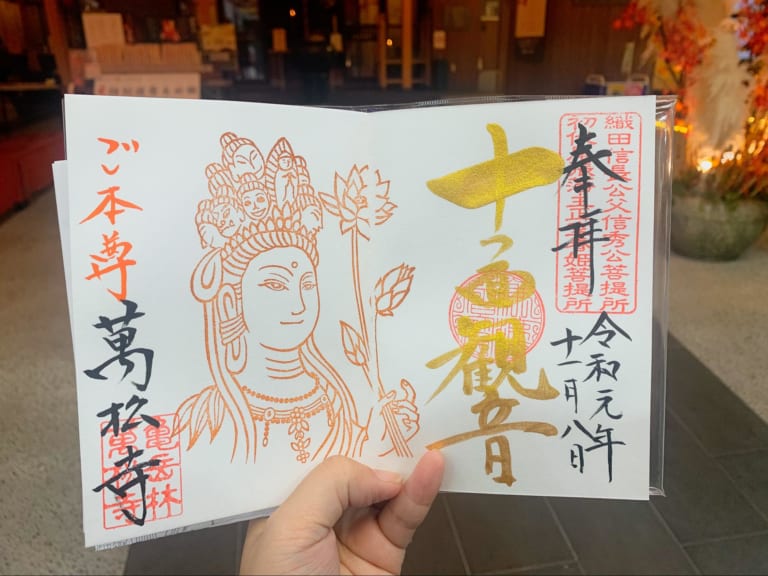 織田信長公父信秀公菩提所
初代尾張藩主正室春姫菩提所
奉拝
令和元年
十一月八日
十一面観音
ご本尊
萬松寺
龜岳林
萬松寺